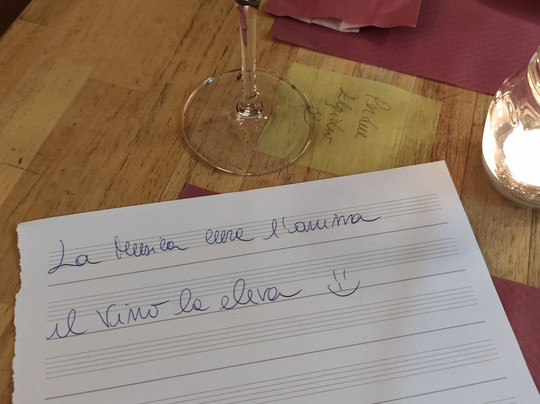 La Musica cura l'anima
il vino la eleva